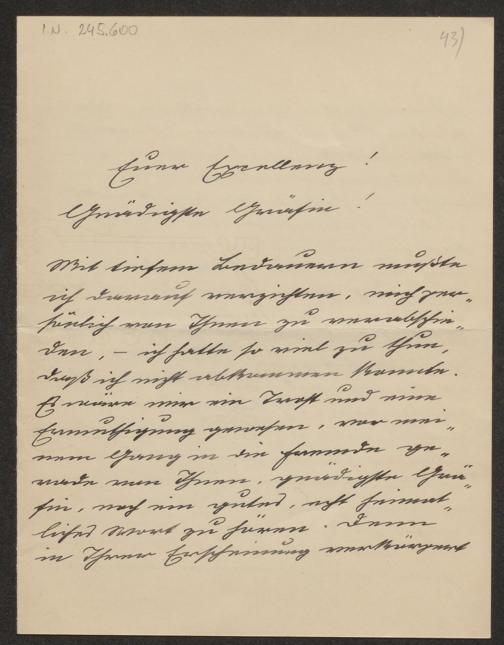 I.N. 245.600
43)
Euer Excellenz!
Gnädigste Gräfin!
Mit tiefem Bedauern mußte
ich darauf verzichten, mich per-
sönlich von Ihnen zu verabschie-
den, – ich hatte so viel zu thun,
daß ich nicht abkommen konnte.
Es wäre mir ein Trost und eine
Ermuthigung gewesen, vor mei-
nem Gang in die Fremde ge-
rade von Ihnen, gnädigste Grä-
fin, noch ein gutes, echt heimat-
liches Wort zu hören. Denn
in Ihrer Erscheinung verkörpert